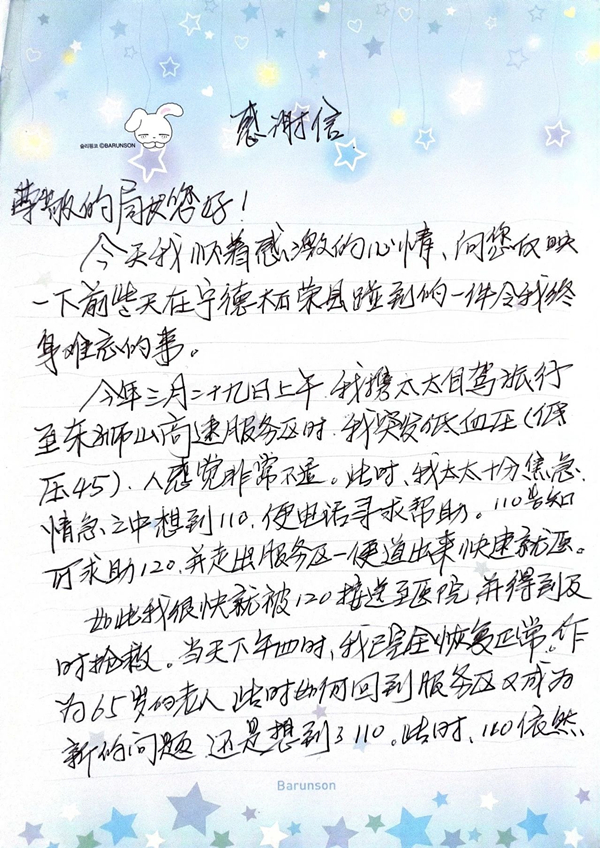 슬리핑코 ©BARUNSON
感谢信
尊敬的局长您好！
今天我怀着感激的心情、向您反映
一下前些天在宁德柘荣县碰到的一件令我终
身难忘的事。
今年三月二十九日上午.我携太太自驾旅行
至东狮山高速服务区时.我突发低血压(低
压45).人感觉非常不适。此时、我太太十分焦急.
情急之中想到110.便电话寻求帮助。110告知
可求助120.并走出服务区一便道出来快速就医。
如此我很快就被120接送至医院.并得到及
时抢救。当天下午四时、我已完全恢复正常。作
为65岁的老人.此时如何回到服务区又成为
新的问题.还是想到了110。此时、110依然
Barunson